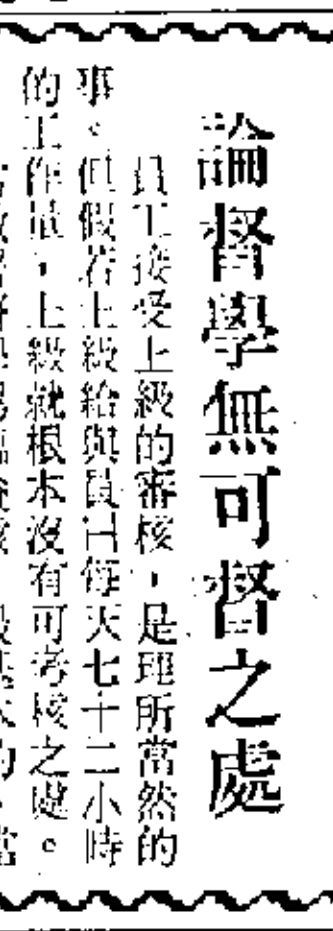 論督學無可督之處
員工接受上級的審核，是理所當然的
事。但假若上級給與員工每天七十二小時
的工作量，上級就根本沒有可考核之處。